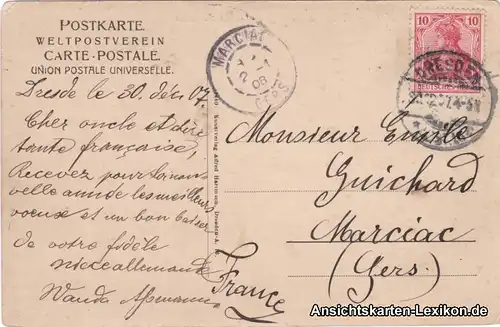 POSTKARTE.
WELTPOSTVEREIN
CARTE-POSTALE.
UNION POSTALE UNIVERSELLE.
Dresde le 30 déc. 07.
Cher oncle et
tante française,
Recevez pour la nou
velle année les meilleurs
voeux et un bon baiser
de votre fidèle
nièce allemande
Wanda
Kunstverlag Alfred Hartmann, Dresden-A.
MARCIAC
GERS
08
10 10
DEUTSCHES
DRESDEN
Monsieur Emile
Guichard
Marciac
(Gers.)
France
Ansichtskarten-Lexikon.de